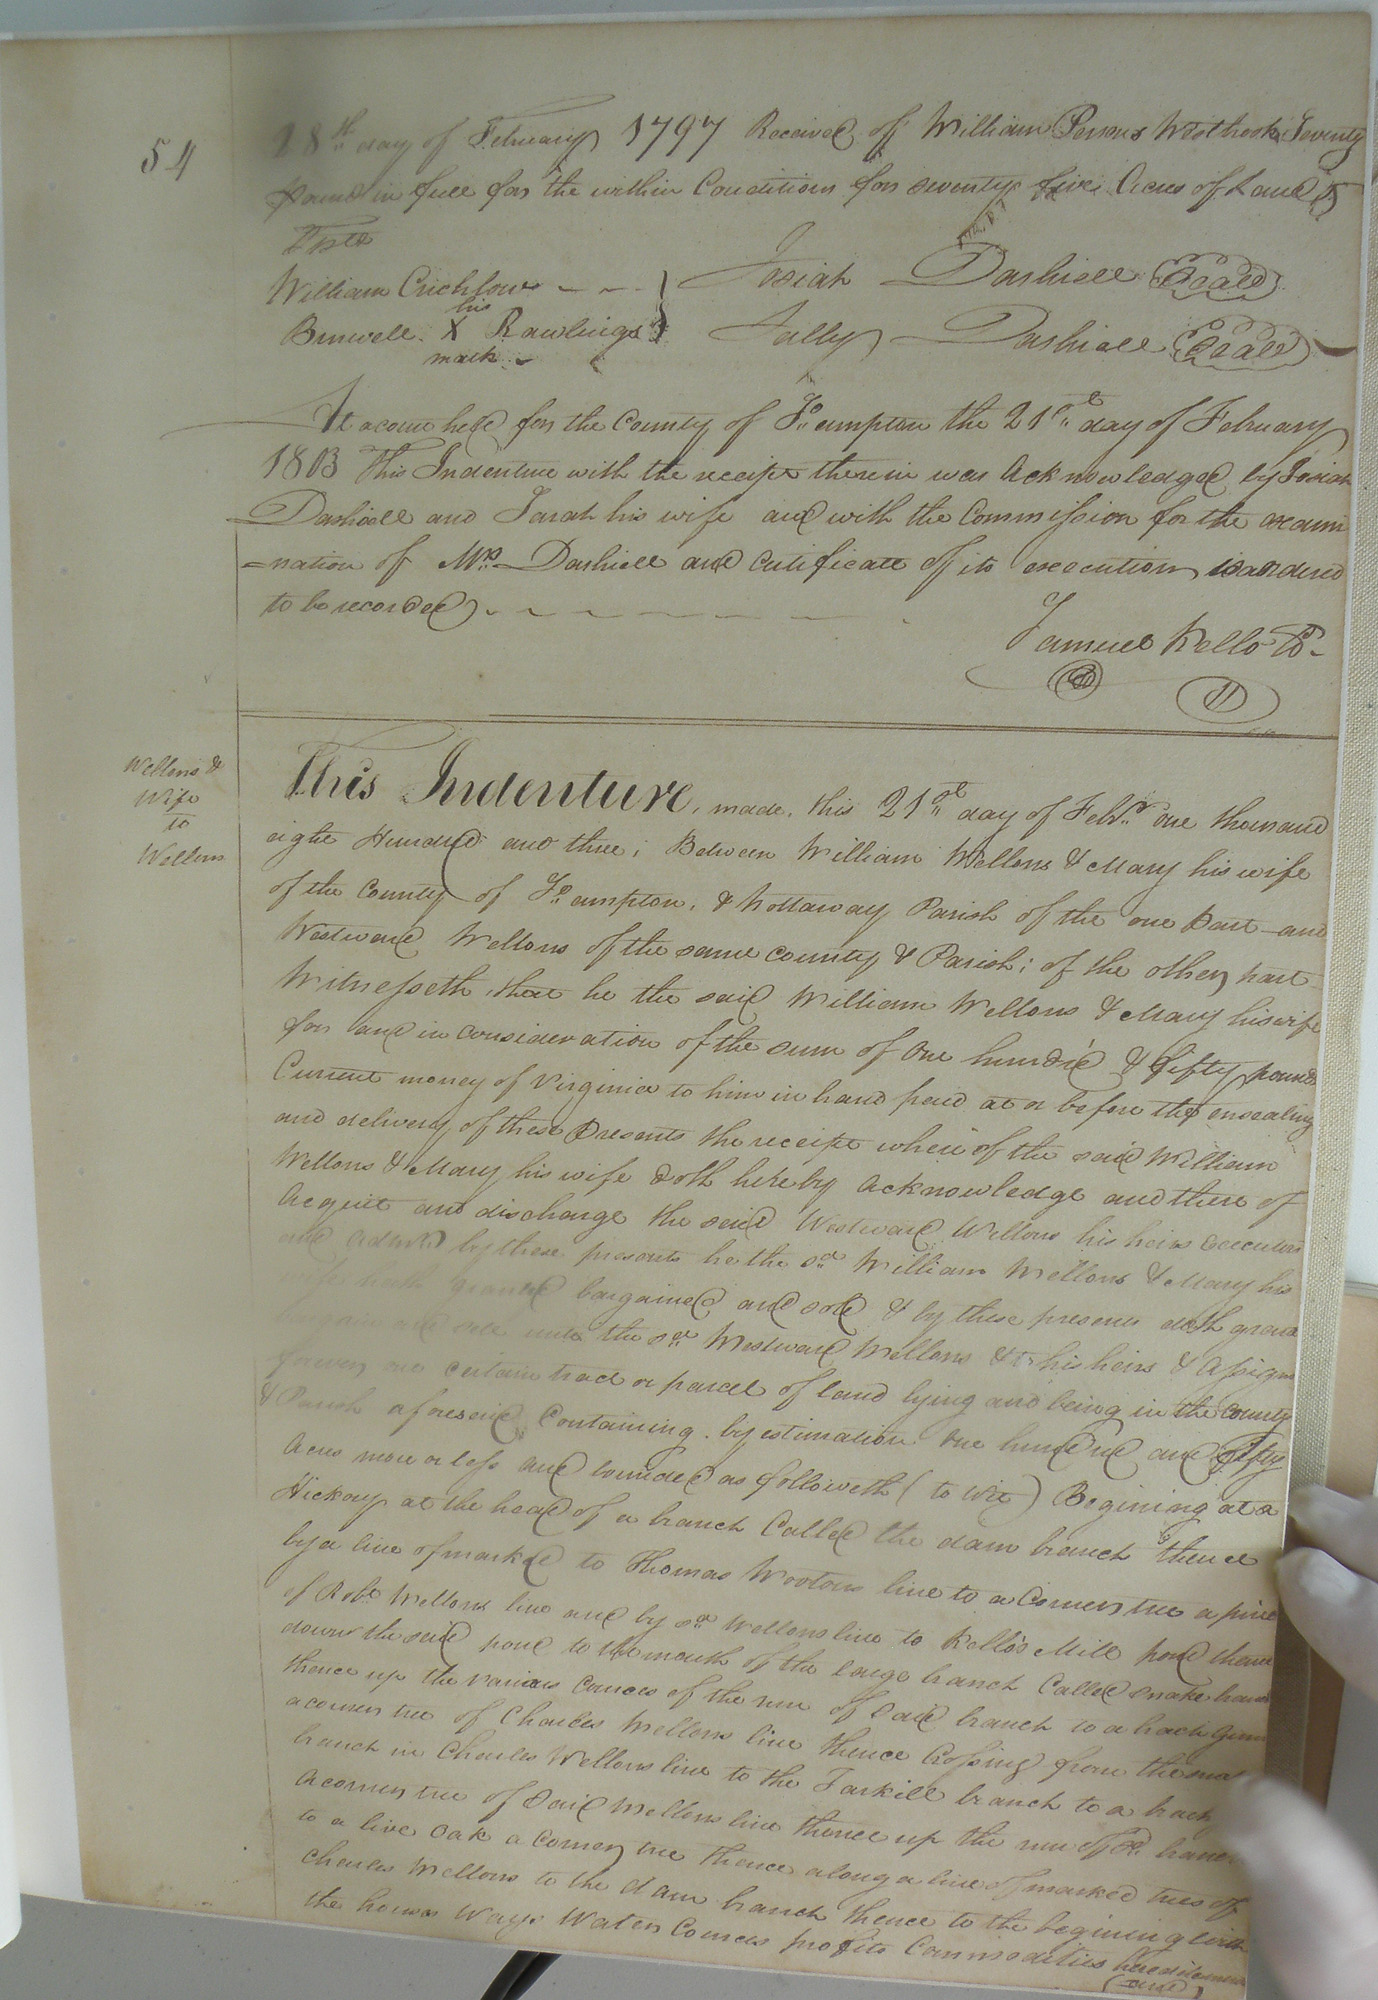 54
18th day of February 1797 Received of William Persons Westbrook Seventy
pound in full for the within Conditions for seventy five Acres of Land
Teste
William Crichlow
Josiah Dashiell Seal
his
Burwell X Rawlings
mark
Sally Dashiell Seal
At a court held for the County of So.ampton the 21st day of February
1803 This Indenture with the receipt therein was Acknowledged by Josiah
Dashiell and Sarah his wife and with the Commission for the exami
=nation of Mrs Dashiell and Certificate of its execution is ordered
to be recorded
Samuel Kello
Wellons &
Wife
to
Wellons
This Indenture, made, this 21st day of Febr. one thousand
eight Hundred and three; Between William Wellons & Mary his wife
of the County of So.ampton, & Nottaway Parish of the one Part and
Westward Wellons of the same county & Parish; of the other part
Witnesseth, that he the said William Wellons & Mary his wife
for and in consideration of the sum of One hundrd & fifty pounds
Current money of Virginia to him in hand paid at or before the ensealing
and delivery of these Presents the receipt where of the said William
Wellons & Mary his wife doth hereby Acknowledge and there of
Acquit and discharge the said Westward Wellons his heirs executors
and Admrs by these presents he the sd William Wellons & Mary his
wife hath granted bargained and sold & by these presents doth grant
bargain and sell unto the sd Westward Wellons & to his heirs & Assigns
forever one certain tract or parcel of land lying and being in the County
& Parish aforesaid Containing by estimation One hundred and fifty
Acres more or less and bounded as followeth (to wit) Begining at a
Hickory at the head of a branch Called the dam branch thence
by a line of marked to Thomas Wootons line to a Corner tree a pine
of Robt Wellons line and by sd Wellons line to Kello's Mill pond thence
down the said pond to the mouth of the large branch Called snake branch
thence up the various Cources of the run of Said branch to a back Gum
a corner tree of Charles Wellons line thence Crossing from the
branch in Charles Wellons line to the Tarkill branch to a back
A corner tree of Said Wellons line thence up the run of sd. branch
to a live Oak a Corner tree thence along a line of marked trees of
Charles Wellons to the dam branch thence to the begining with
the houses Ways Water Cources profits Commodities hereditaments
(and)